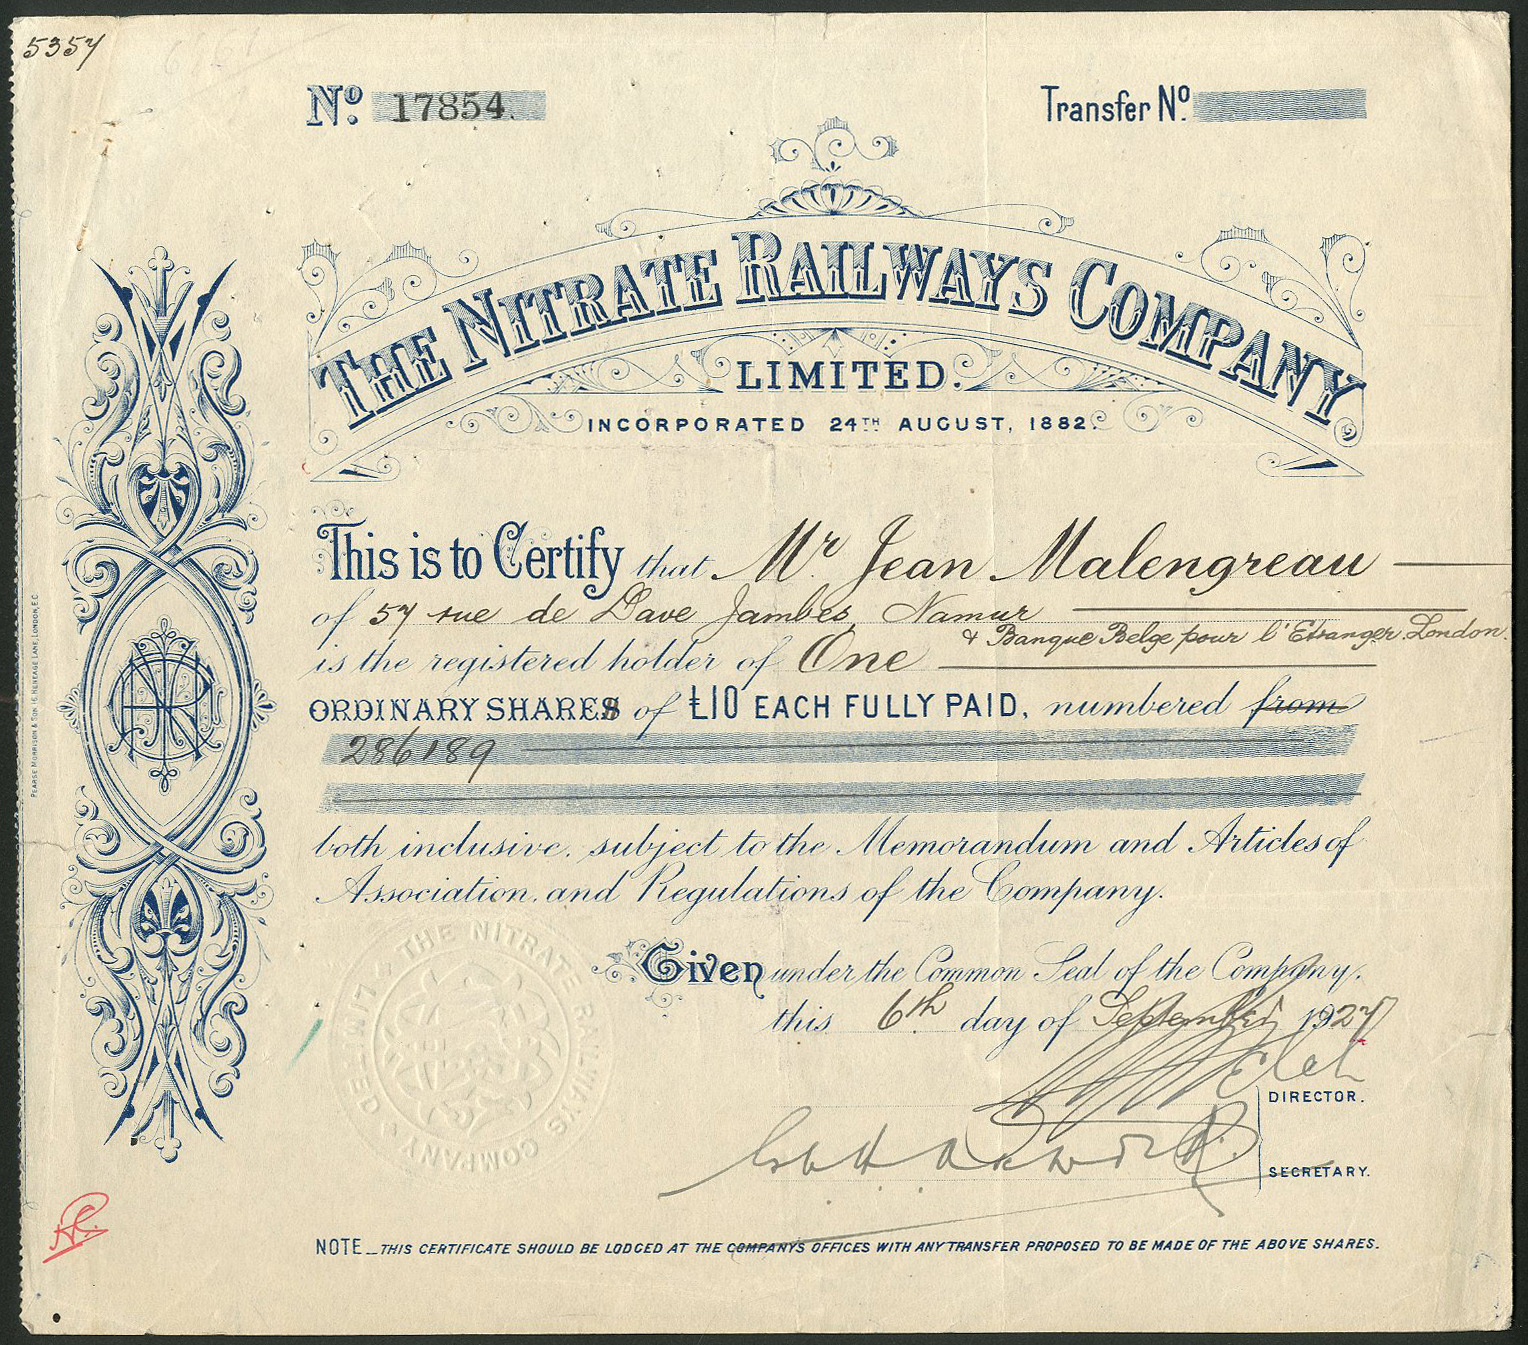 5357
Nº. 17854.
Transfer Nº.
THE NITRATE RAILWAYS COMPANY
LIMITED.
INCORPORATED 24TH AUGUST, 1882.
This is to Certify that Mr. Jean Malengreau
of 57 rue de Dave Jambes, Namur
& Banque Belge pour l'Etranger London.
is the registered holder of One
ORDINARY SHARES of £10 EACH FULLY PAID, numbered from
286189
both inclusive, subject to the Memorandum and Articles of
Association, and Regulations of the Company.
Given under the Common Seal of the Company,
this 6th day of September 1927
DIRECTOR.
SECRETARY.
THE NITRATE RAILWAYS COMPANY LIMITED
NOTE _ THIS CERTIFICATE SHOULD BE LODGED AT THE COMPANYS OFFICES WITH ANY TRANSFER PROPOSED TO BE MADE OF THE ABOVE SHARES.
PEARSE MORRISON & SON 15, HENEAGE LANE, LONDON, E.C.